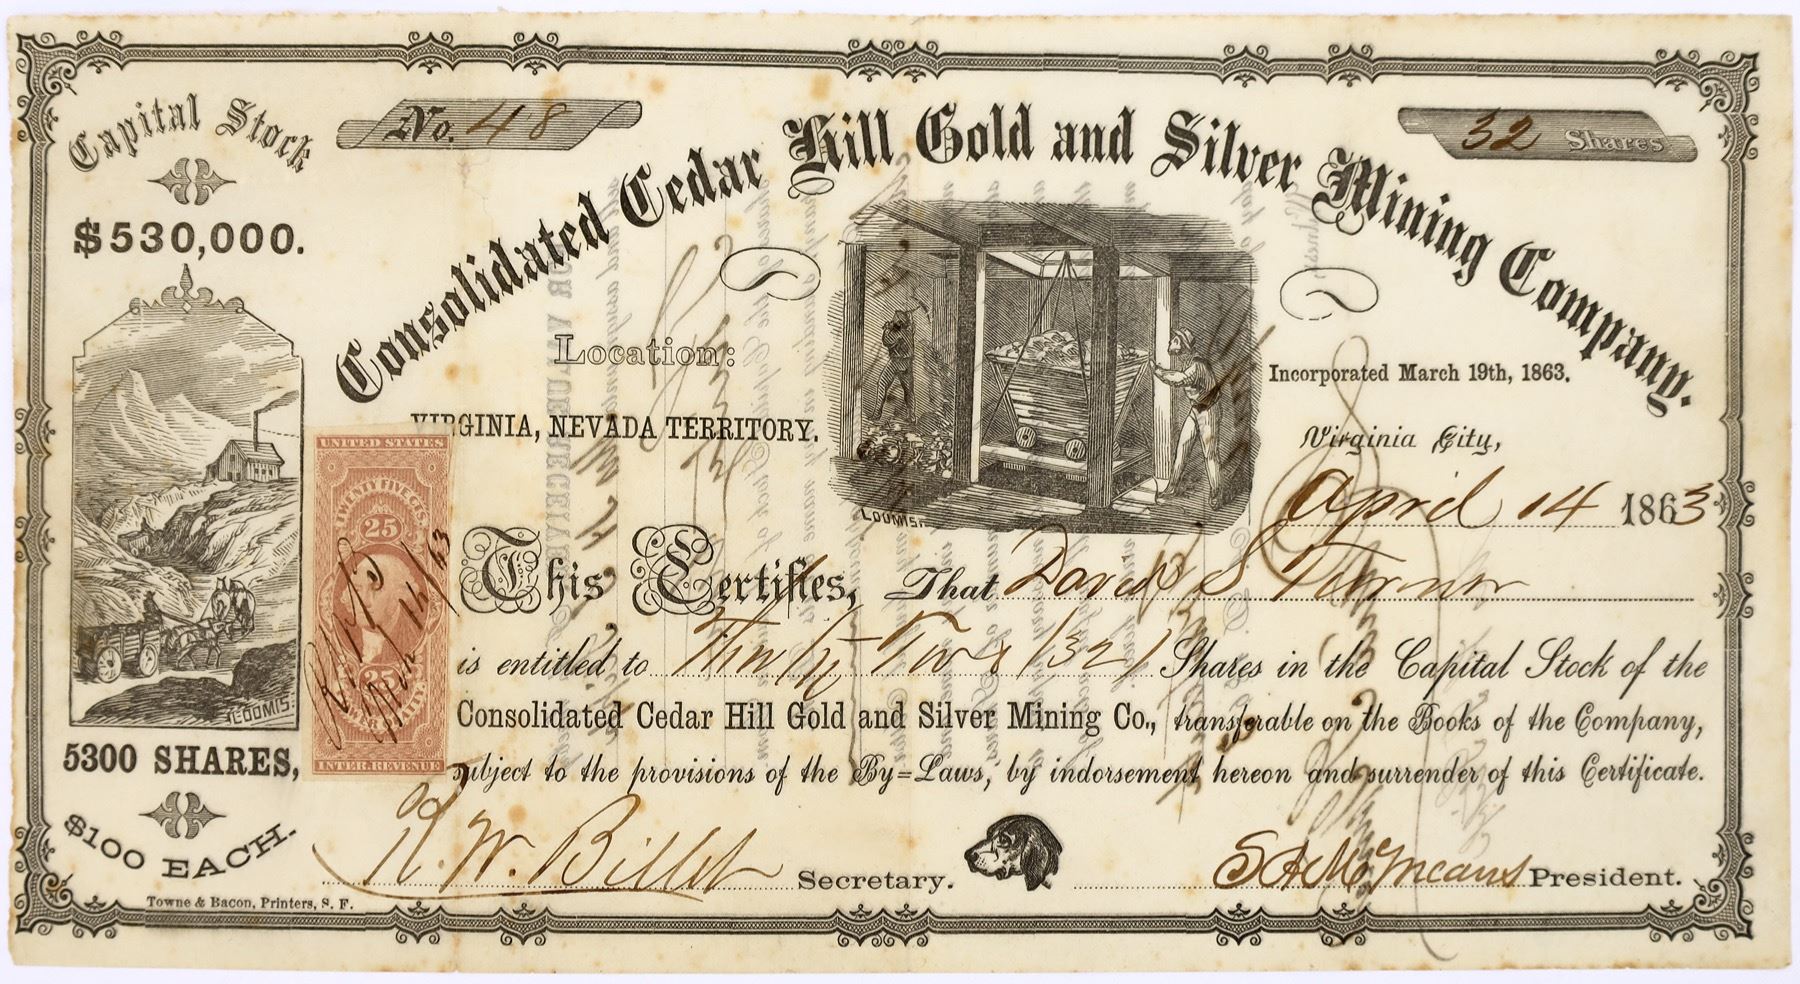 Capital Stock
$530,000.
No. 48
32 Shares
Consolidated Cedar Hill Gold and Silver Mining Company.
Location:
VIRGINIA, NEVADA TERRITORY.
LOOMIS.
Incorporated March 19th, 1863.
Virginia City,
April 14 1863
UNITED STATES
TWENTY FIVE CTS.
25
14/63
25
INTER. REVENUE
This Certifies, That David S Turner
is entitled to Thirty Two (32) Shares in the Capital Stock of the
Consolidated Cedar Hill Gold and Silver Mining Co., transferable on the Books of the Company,
subject to the provisions of the By=Laws, by indorsement hereon and surrender of this Certificate.
LOOMIS.
5300 SHARES,
$100 EACH.
R. W. Billet Secretary.
S A McMeans President.
Towne & Bacon, Printers, S. F.